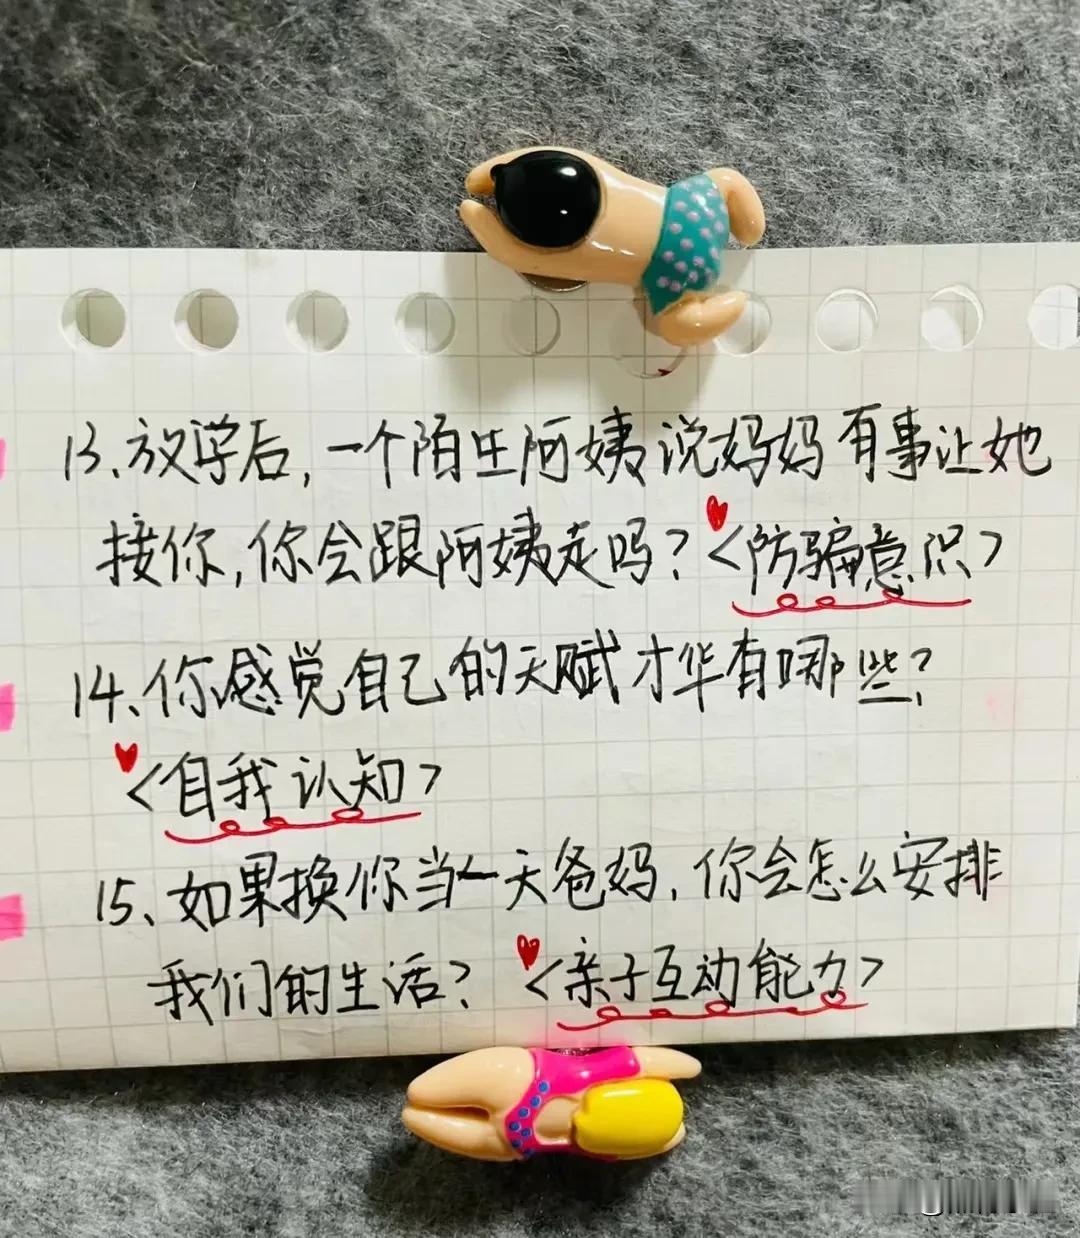 13、放学后,一个陌生阿姨说妈妈有事让她
接你,你会跟阿姨走吗?<防骗意识>
14、你感觉自己的天赋才华有哪些?
<自我认知>
15、如果换你当一天爸妈,你会怎么安排
我们的生活?<亲子互动能力>